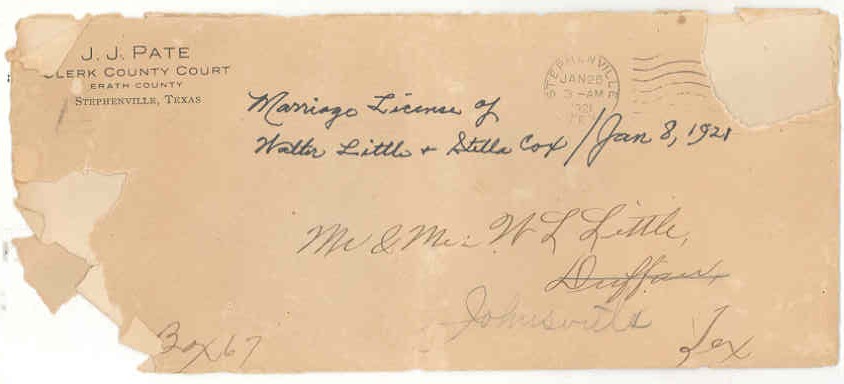 J. J. PATE
CLERK COUNTY COURT
ERATH COUNTY
STEPHENVILLE, TEXAS
STEPHENVILLE
JAN 28
3 -AM
1921
Marriage License of
Walter Little + Stella Cox / Jan 8, 1921
Mr & Mrs W L Little,
Duffau,
Johnsville
Tex
Box 67